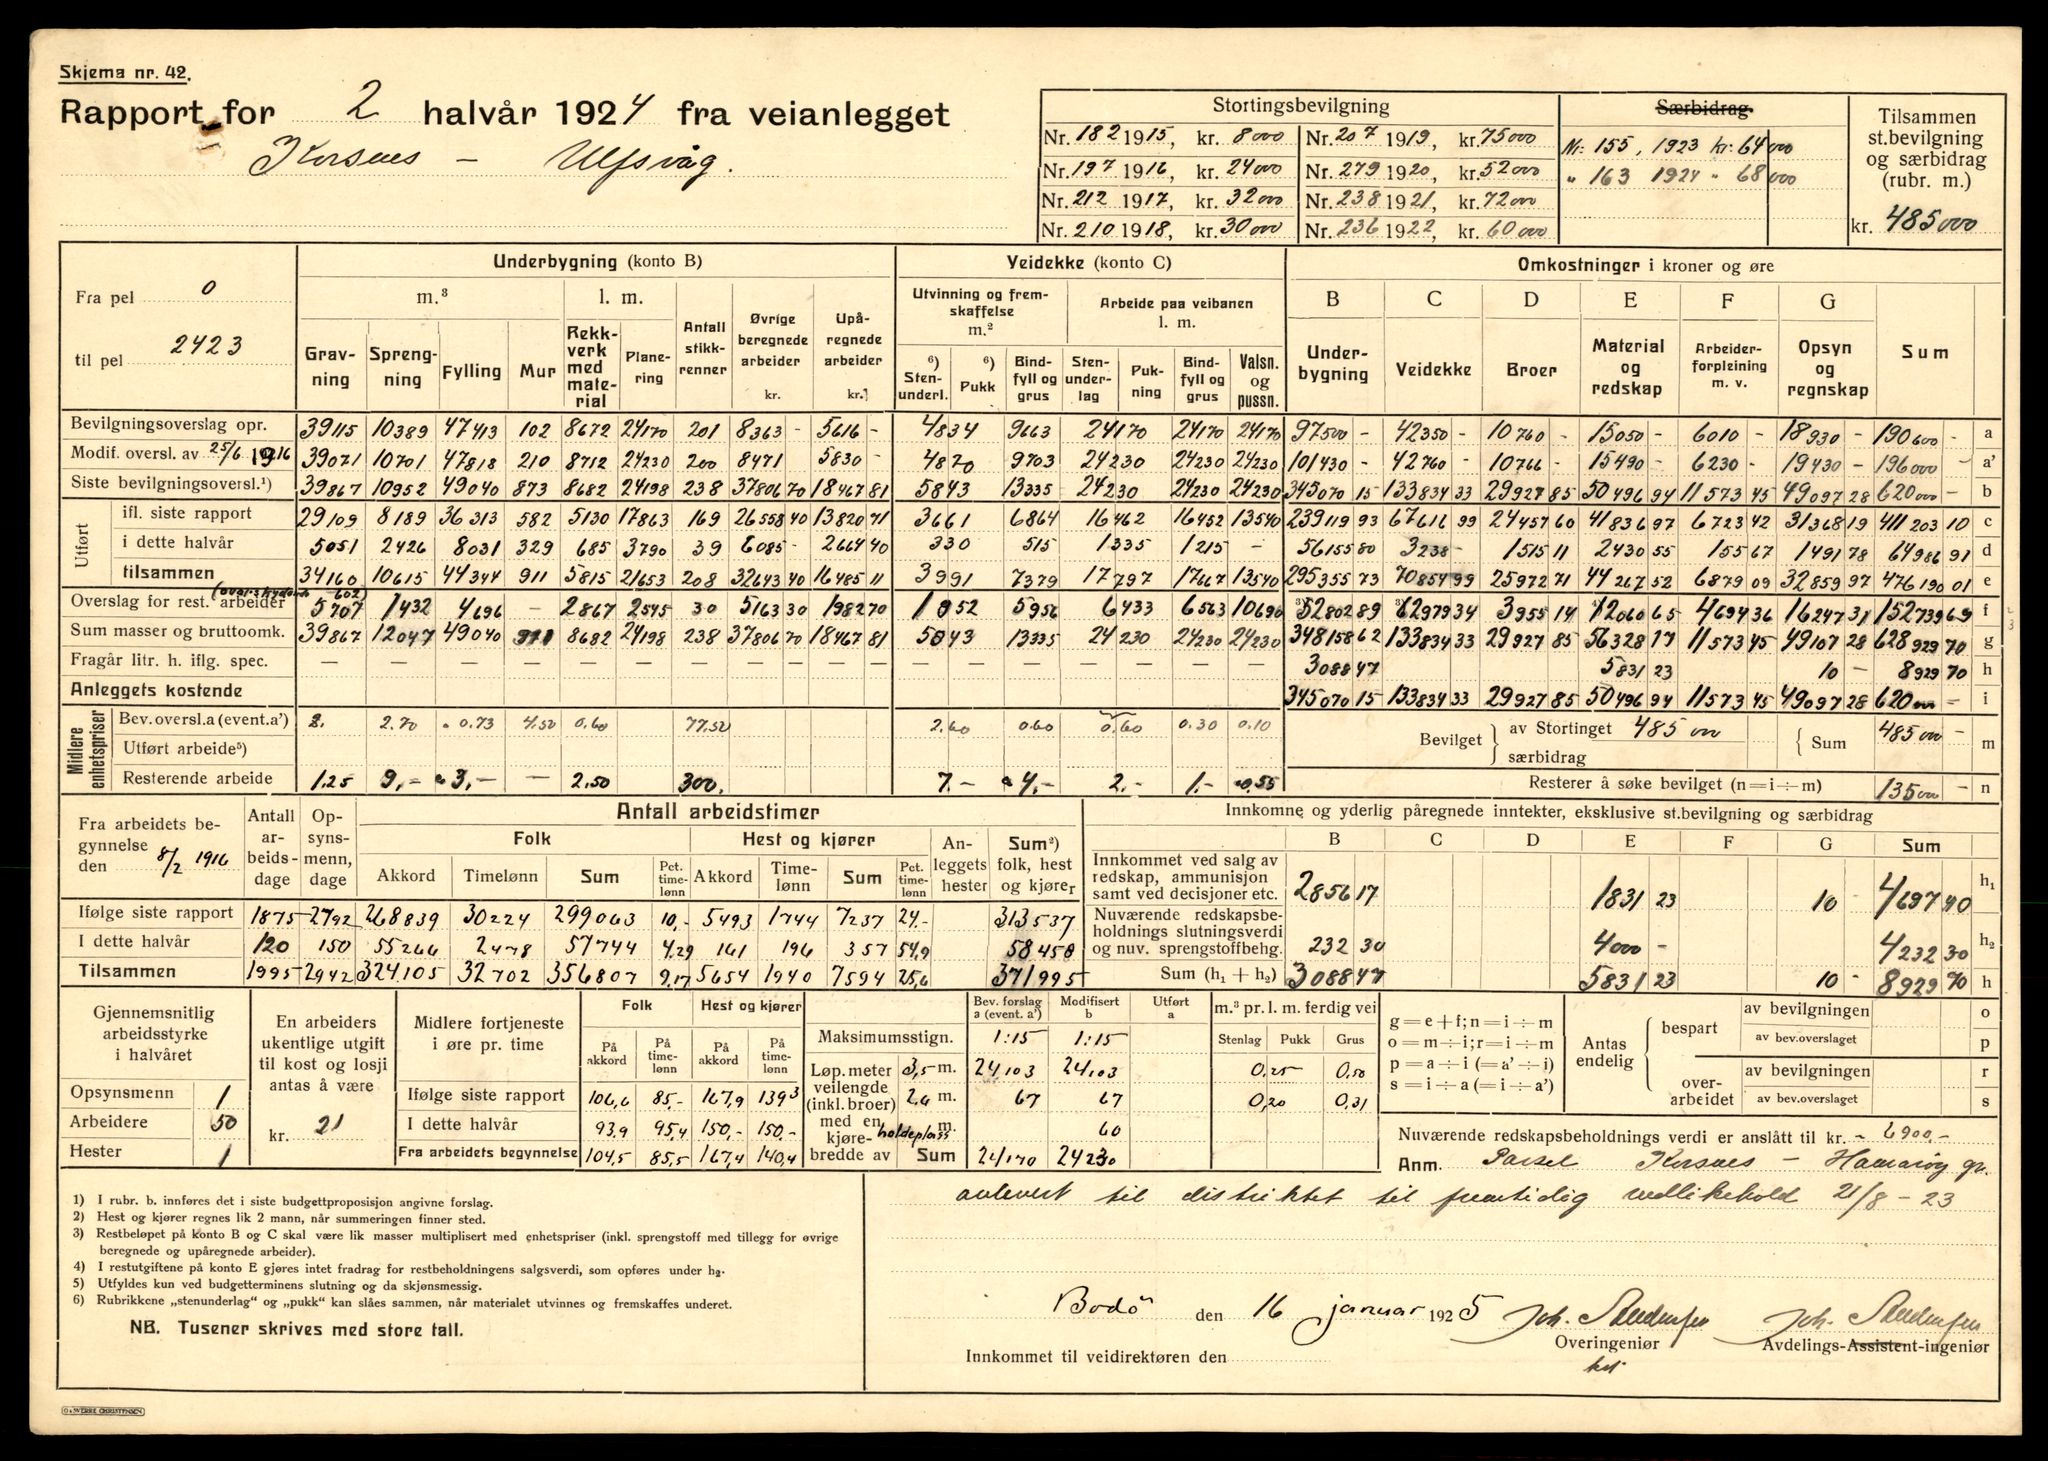 Skjema nr. 42.
Rapport for 2 halvår 1924 fra veianlegget
Korsnes – Ulfsvåg.
Stortingsbevilgning
Særbidrag
Tilsammen st.bevilgning og særbidrag (rubr. m.)
kr. 485000
Nr. 182 1915, kr. 8000 Nr. 207 1919, kr. 75000 Nr. 155, 1923 kr. 64000
Nr. 197 1916, kr. 24000 Nr. 279 1920, kr. 52000 " 163 1924 " 68000
Nr. 212 1917, kr. 32000 Nr. 238 1921, kr. 72000
Nr. 210 1918, kr. 30000 Nr. 236 1922, kr. 60000
Fra pel 0
til pel 2423
Underbygning (konto B) Veidekke (konto C) Omkostninger i kroner og øre
m.³ l. m. Utvinning og fremskaffelse m.² Arbeide paa veibanen l. m. B C D E F G
Gravning Sprengning Fylling Mur Rekkverk med material Planering Antall stikkrenner Øvrige beregnede arbeider kr. Upåregnede arbeider kr.
6) Stenunderl. 6) Pukk Bindfyll og grus Stenunderlag Pukning Bindfyll og grus Valsn. og pussn.
Underbygning Veidekke Broer Material og redskap Arbeiderforpleining m. v. Opsyn og regnskap Sum
Bevilgningsoverslag opr. 39115 10389 47413 102 8672 24170 201 8363 - 5616 - 4834 9663 24170 24170 24170 97500 - 42350 - 10760 - 15050 - 6010 - 18930 - 190600 - a
Modif. oversl. av 25/6 1916 39071 10701 47818 210 8712 24230 200 8471 5830 - 4870 9703 24230 24230 24230 101430 - 42760 - 10766 - 15490 - 6230 - 19430 - 196000 - a'
Siste bevilgningsoversl.¹) 39867 10952 49040 873 8682 24198 238 37806 70 18467 81 5843 13335 24230 24230 24230 345070 15 133834 33 29927 85 50496 94 11573 45 49097 28 620000 - b
Utført
ifl. siste rapport 29109 8189 36313 582 5130 17863 169 26558 40 13820 71 3661 6864 16462 16452 13540 239119 93 67616 99 24457 60 41836 97 6723 42 31368 19 411203 10 c
i dette halvår 5051 2426 8031 329 685 3790 39 6085 - 2664 40 330 515 1335 1215 - 56155 80 3238 - 1515 11 2430 55 155 67 1491 78 64986 91 d
tilsammen 34160 10615 44344 911 5815 21653 208 32643 40 16485 11 3991 7379 17797 17667 13540 295355 73 70854 99 25972 71 44267 52 6879 09 32859 97 476190 01 e
Overslag for rest. arbeider 5707 1432 4696 - 2867 2545 30 5163 30 1982 70 1852 5956 6433 6563 10690 ³)52802 89 ³)62979 34 3955 14 ⁴)12060 65 4694 36 16247 31 152739 69 f
Sum masser og bruttoomk. 39867 12047 49040 911 8682 24198 238 37806 70 18467 81 5843 13335 24230 24230 24230 348158 62 133834 33 29927 85 56328 17 11573 45 49107 28 628929 70 g
Fragår litr. h. iflg. spec. — — — — — — — — — — — — — — 3088 47 5831 23 10 - 8929 70 h
Anleggets kostende 345070 15 133834 33 29927 85 50496 94 11573 45 49097 28 620000 - i
Midlere enhetspriser
Bev. oversl. a (event. a') 2. 2.70 0.73 4.50 0.60 77.50 2.60 0.60 0.60 0.30 0.10
Utført arbeide⁵)
Resterende arbeide 1.25 9.- 3.- — 2.50 300. 7.- 4.- 2.- 1.- 0.55
Bevilget av Stortinget 485000 særbidrag Sum 485000 - m
Resterer å søke bevilget (n = i ÷ m) 135000 - n
Fra arbeidets begynnelse den 8/2 1916
Antall arbeidsdage Opsynsmenn, dage Antall arbeidstimer
Folk Hest og kjører Anleggets hester Sum²) folk, hest og kjører
Akkord Timelønn Sum Pct. timelønn Akkord Timelønn Sum Pct. timelønn
Ifølge siste rapport 1875 2792 268839 30224 299063 10,- 5493 1744 7237 24.- 313537
I dette halvår 120 150 55266 2478 57744 4.29 161 196 357 54,9 58458
Tilsammen 1995 2942 324105 32702 356807 9,17 5654 1940 7594 25,6 371995
Innkomne og yderlig påregnede inntekter, eksklusive st.bevilgning og særbidrag
B C D E F G Sum
Innkommet ved salg av redskap, ammunisjon samt ved decisjoner etc. 2856 17 1831 23 10 - 4697 40 h₁
Nuværende redskapsbeholdnings slutningsverdi og nuv. sprengstoffbehg. 232 30 4000 - 4232 30 h₂
Sum (h₁ + h₂) 3088 47 5831 23 10 - 8929 70 h
Gjennemsnitlig arbeidsstyrke i halvåret
Opsynsmenn 1
Arbeidere 50
Hester 1
En arbeiders ukentlige utgift til kost og losji antas å være
kr. 21
Midlere fortjeneste i øre pr. time
Folk Hest og kjører
På akkord På timelønn På akkord På timelønn
Ifølge siste rapport 106,6 85,- 167,9 139,3
I dette halvår 93,9 95,4 150,- 150,-
Fra arbeidets begynnelse 104,5 85,5 167,4 140,4
Bev. forslag a (event. a') Modifisert b Utført a
Maksimumsstign. 1:15 1:15
Løp. meter veilengde (inkl. broer) med en kjørebredde av
3,5 m. 24103 24103
2.6 m. 67 67
holdeplass m. 60
Sum 24170 24230
m.³ pr. l. m. ferdig vei
Stenlag Pukk Grus
0,25 0,50
0,20 0,31
g = e + f; n = i ÷ m
o = m ÷ i; r = i ÷ m
p = a ÷ i (= a' ÷ i)
s = i ÷ a (= i ÷ a')
Antas endelig
bespart av bevilgningen o
av bev.overslaget p
overarbeidet av bevilgningen r
av bev.overslaget s
Nuværende redskapsbeholdnings verdi er anslått til kr. - 6900,-
Anm. Parsel Korsnes – Hamarøy gr.
avlevert til distriktet til fremtidig vedlikehold 21/8 - 23
1) I rubr. b. innføres det i siste budgettproposisjon angivne forslag.
2) Hest og kjører regnes lik 2 mann, når summeringen finner sted.
3) Restbeløpet på konto B og C skal være lik masser multiplisert med enhetspriser (inkl. sprengstoff med tillegg for øvrige
beregnede og upåregnede arbeider).
4) I restutgiftene på konto E gjøres intet fradrag for restbeholdningens salgsverdi, som opføres under h₂.
5) Utfyldes kun ved budgetterminens slutning og da skjønsmessig.
6) Rubrikkene „stenunderlag" og „pukk" kan slåes sammen, når materialet utvinnes og fremskaffes underet.
NB. Tusener skrives med store tall.
Bodö den 16 januar 1925
Overingeniør
Avdelings-Assistent-ingeniør
Innkommet til veidirektøren den
O. SVERRE CHRISTENSEN